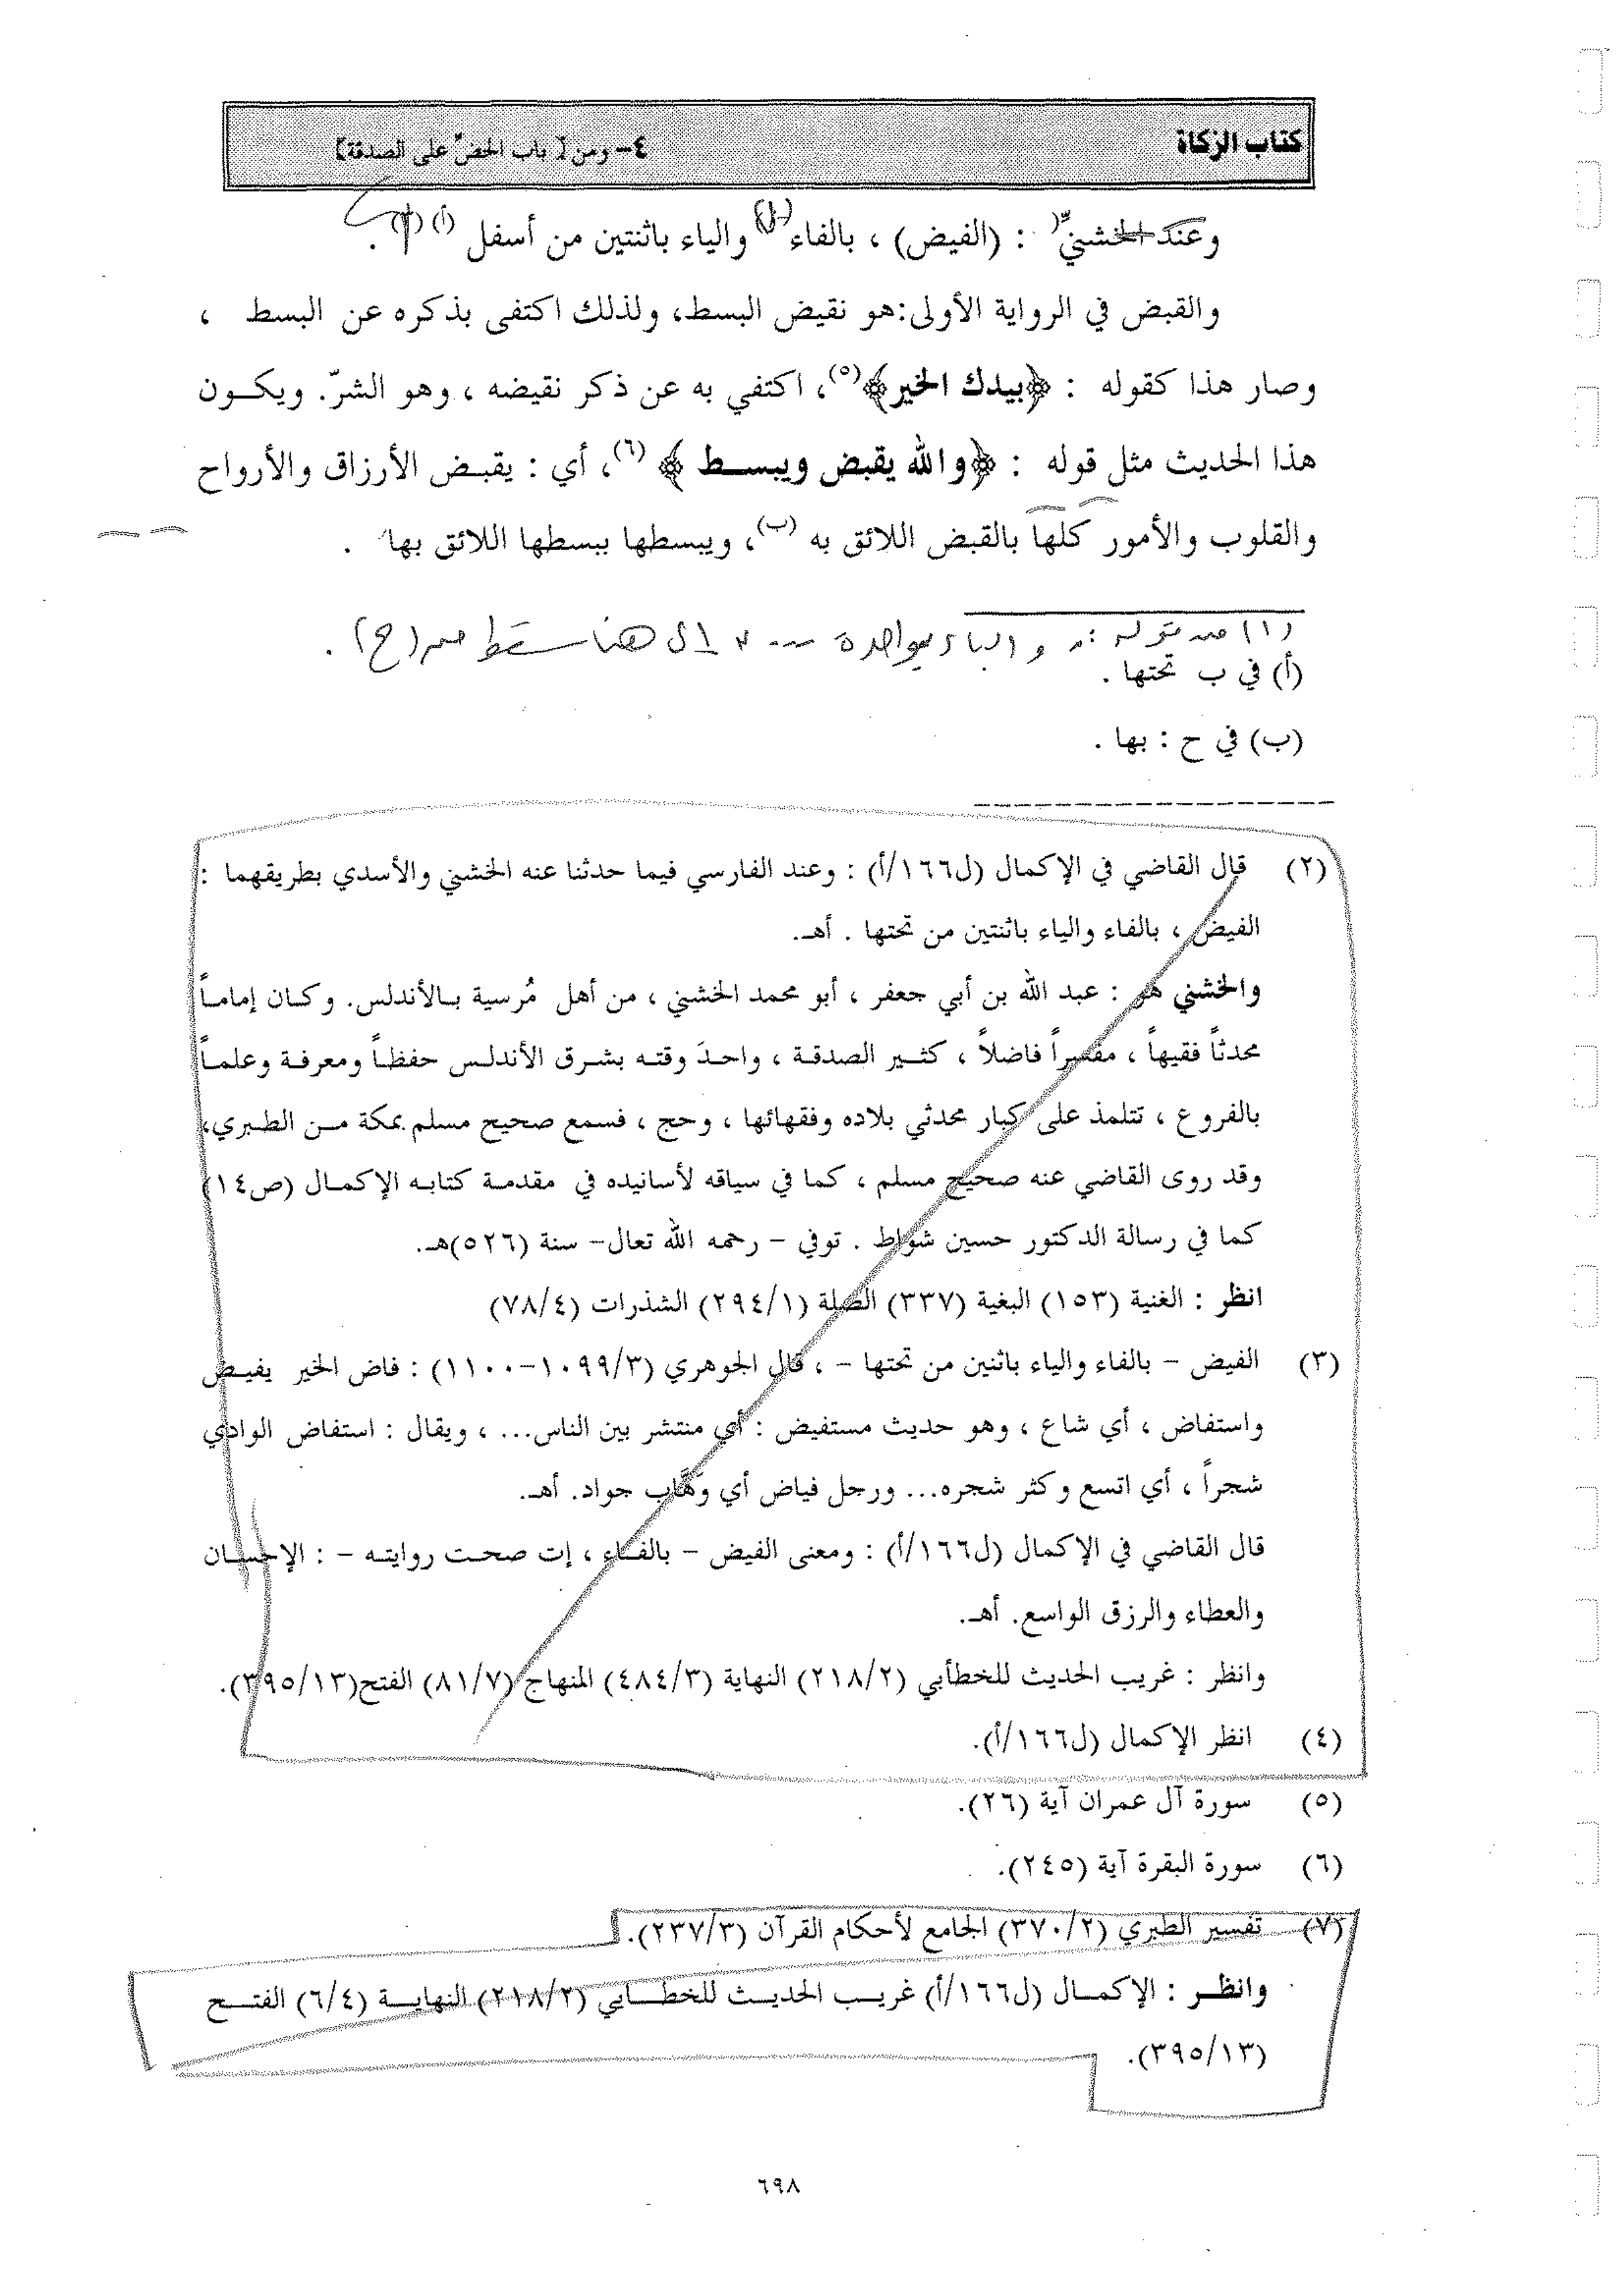 كتاب الزكاة
٤- ومن [ باب الحضّ على الصدقة]
وعند الخشنيّ : (الفيض) ، بالفاء والياء باثنتين من أسفل (أ) .
والقبض في الرواية الأولى:هو نقيض البسط، ولذلك اكتفى بذكره عن البسط ،
وصار هذا كقوله : ﴿بيدك الخير﴾(٥)، اكتفي به عن ذكر نقيضه ، وهو الشرّ. ويكـون
هذا الحديث مثل قوله : ﴿والله يقبض ويبسـط ﴾ (٦)، أي : يقبـض الأرزاق والأرواح
والقلوب والأمور كلها بالقبض اللائق به (ب)، ويبسطها ببسطها اللائق بها .
(١) من قوله : والباء بواحدة --- إلى هنا سقط من (ح) .
(أ) في ب تحتها .
(ب) في ح : بها .
(٢) قال القاضي في الإكمال (ل١٦٦/أ) : وعند الفارسي فيما حدثنا عنه الخشني والأسدي بطريقهما :
الفيض ، بالفاء والياء باثنتين من تحتها . أهـ.
والخشني هو : عبد الله بن أبي جعفر ، أبو محمد الخشني ، من أهل مُرسية بـالأندلس. وكـان إمامـاً
محدثاً فقيهاً ، مفسراً فاضلاً ، كثـير الصدقـة ، واحدَ وقتـه بشـرق الأندلـس حفظـاً ومعرفـة وعلمـاً
بالفروع ، تتلمذ على كبار محدثي بلاده وفقهائها ، وحج ، فسمع صحيح مسلم بمكة مـن الطـبري،
وقد روى القاضي عنه صحيح مسلم ، كما في سياقه لأسانيده في مقدمـة كتابـه الإكمـال (ص١٤)
كما في رسالة الدكتور حسين شواط . توفي - رحمه الله تعال- سنة (٥٢٦)هـ.
انظر : الغنية (١٥٣) البغية (٣٣٧) الصلة (٢٩٤/١) الشذرات (٧٨/٤)
(٣) الفيض - بالفاء والياء باثنين من تحتها - ، قال الجوهري (١٠٩٩/٣-١١٠٠) : فاض الخير يفيـض
واستفاض ، أي شاع ، وهو حديث مستفيض : أي منتشر بين الناس... ، ويقال : استفاض الوادي
شجراً ، أي اتسع وكثر شجره... ورجل فياض أي وَهَّاب جواد. أهـ.
قال القاضي في الإكمال (ل١٦٦/أ) : ومعنى الفيض - بالفـاء ، إت صحـت روايتـه - : الإحسـان
والعطاء والرزق الواسع. أهـ.
وانظر : غريب الحديث للخطأبي (٢١٨/٢) النهاية (٤٨٤/٣) المنهاج (٨١/٧) الفتح(٣٩٥/١٣).
(٤) انظر الإكمال (ل١٦٦/أ).
(٥) سورة آل عمران آية (٢٦).
(٦) سورة البقرة آية (٢٤٥).
(٧) تفسير الطبري (٣٧٠/٢) الجامع لأحكام القرآن (٢٣٧/٣).
وانظـر : الإكمـال (ل١٦٦/أ) غريـب الحديـث للخطـابي (٢١٨/٢) النهايـة (٦/٤) الفتـح
(٣٩٥/١٣).
٦٩٨